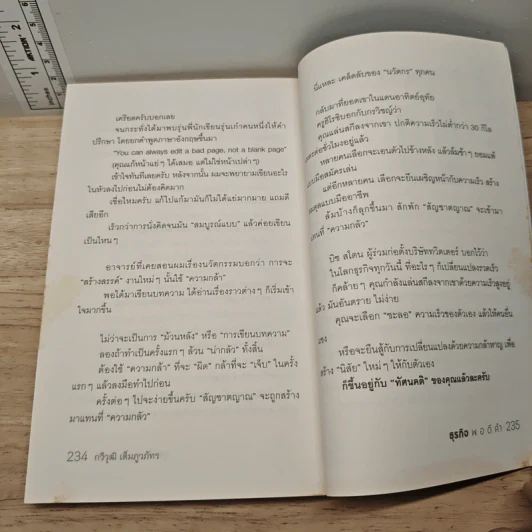 เครียดครับบอกเลย
จนกระทั่งได้มาพบรุ่นพี่นักเขียนรุ่นเก๋าคนหนึ่งให้คำ
ปรึกษา โดยยกคำพูดภาษาอังกฤษขึ้นมา
"You can always edit a bad page, not a blank page"
(คุณแก้หน้าแย่ๆ ได้เสมอ แต่ไม่ใช่หน้าเปล่าๆ)
เข้าใจทันทีเลยครับ หลังจากนั้น ผมจะพยายามเขียนอะไร
ในหัวลงไปก่อนไม่ต้องคิดมาก
เชื่อไหมครับ แก้ไปแก้มามันก็ไม่ได้แย่มากมาย แถมดี
เสียอีก
เร็วกว่าการนั่งคิดจนมัน "สมบูรณ์แบบ" แล้วค่อยเขียน
เป็นไหนๆ
อาจารย์ที่เคยสอนผมเรื่องนวัตกรรมบอกว่า การจะ
"สร้างสรรค์" งานใหม่ๆ นั้นใช้ "ความกล้า"
พอได้มาเขียนบทความ ได้อ่านเรื่องราวต่างๆ ก็เริ่มเข้า
ใจมากขึ้น
ไม่ว่าจะเป็นการ "ม้วนหลัง" หรือ "การเขียนบทความ"
ลองถ้าทำเป็นครั้งแรกๆ ล้วน "น่ากลัว" ทั้งสิ้น
ต้องใช้ "ความกล้า" ที่จะ "ผิด" กล้าที่จะ "เจ็บ" ในครั้ง
แรกๆ แล้วลงมือทำไปก่อน
ครั้งต่อๆ ไปจะง่ายขึ้นครับ "สัญชาตญาณ" จะถูกสร้าง
มาแทนที่ "ความกลัว"
234 กวีวุฒิ เต็มภูวภัทร
นี่แหละ เคล็ดลับของ "นวัตกร" ทุกคน
กลับมาที่ยอดเขาในแดนอาทิตย์อุทัย
ครูฮิโรชิบอกกับกรวิชญ์ว่า
คุณเล่นสกีลงจากเขา ปกติความเร็วไม่ต่ำกว่า 30 กิโล
ต่อชั่วโมงอยู่แล้ว
หลายคนเลือกจะเอนตัวไปข้างหลัง แล้วล้มช้าๆ ยอมแพ้
แบบมือสมัครเล่น
แต่อีกหลายคน เลือกจะยืนเผชิญหน้ากับความเร็ว สร้าง
แบบมืออาชีพ
ล้มบ้างก็ลุกขึ้นมา สักพัก "สัญชาตญาณ" จะเข้ามา
แทนที่ "ความกลัว"
บิซ สโตน ผู้ร่วมก่อตั้งบริษัททวิตเตอร์ บอกไว้ว่า
ในโลกธุรกิจทุกวันนี้ ที่อะไรๆ ก็เปลี่ยนแปลงรวดเร็ว
ก็คล้ายๆ คุณกำลังเล่นสกีลงจากเขาด้วยความเร็วสูงอยู่
แล้ว มันอันตราย ไม่ง่าย
คุณจะเลือก "ชะลอ" ความเร็วของตัวเอง แล้วให้คนอื่น
แซง
หรือจะยืนสู้กับการเปลี่ยนแปลงด้วยความกล้าหาญ เพื่อ
สร้าง "นิสัย" ใหม่ๆ ให้กับตัวเอง
ก็ขึ้นอยู่กับ "ทัศนคติ" ของคุณแล้วละครับ
ธุรกิจ พอดีคำ 235